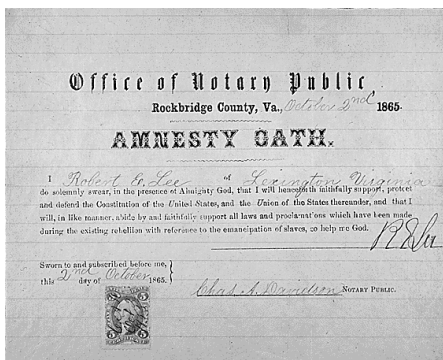 Office of Notary Public
Rockbridge County, Va., October 2nd 1865.
AMNESTY OATH.
I Robert E. Lee of Lexington Virginia
do solemnly swear, in the presence of Almighty God, that I will henceforth faithfully support, protect
and defend the Constitution of the United States, and the Union of the States thereunder, and that I
will, in like manner, abide by and faithfully support all laws and proclamations which have been made
during the existing rebellion with reference to the emancipation of slaves, so help me God.
R E Lee
Sworn to and subscribed before me,
this 2nd day of October 1865.
Chas. A. Davidson NOTARY PUBLIC.
5 5